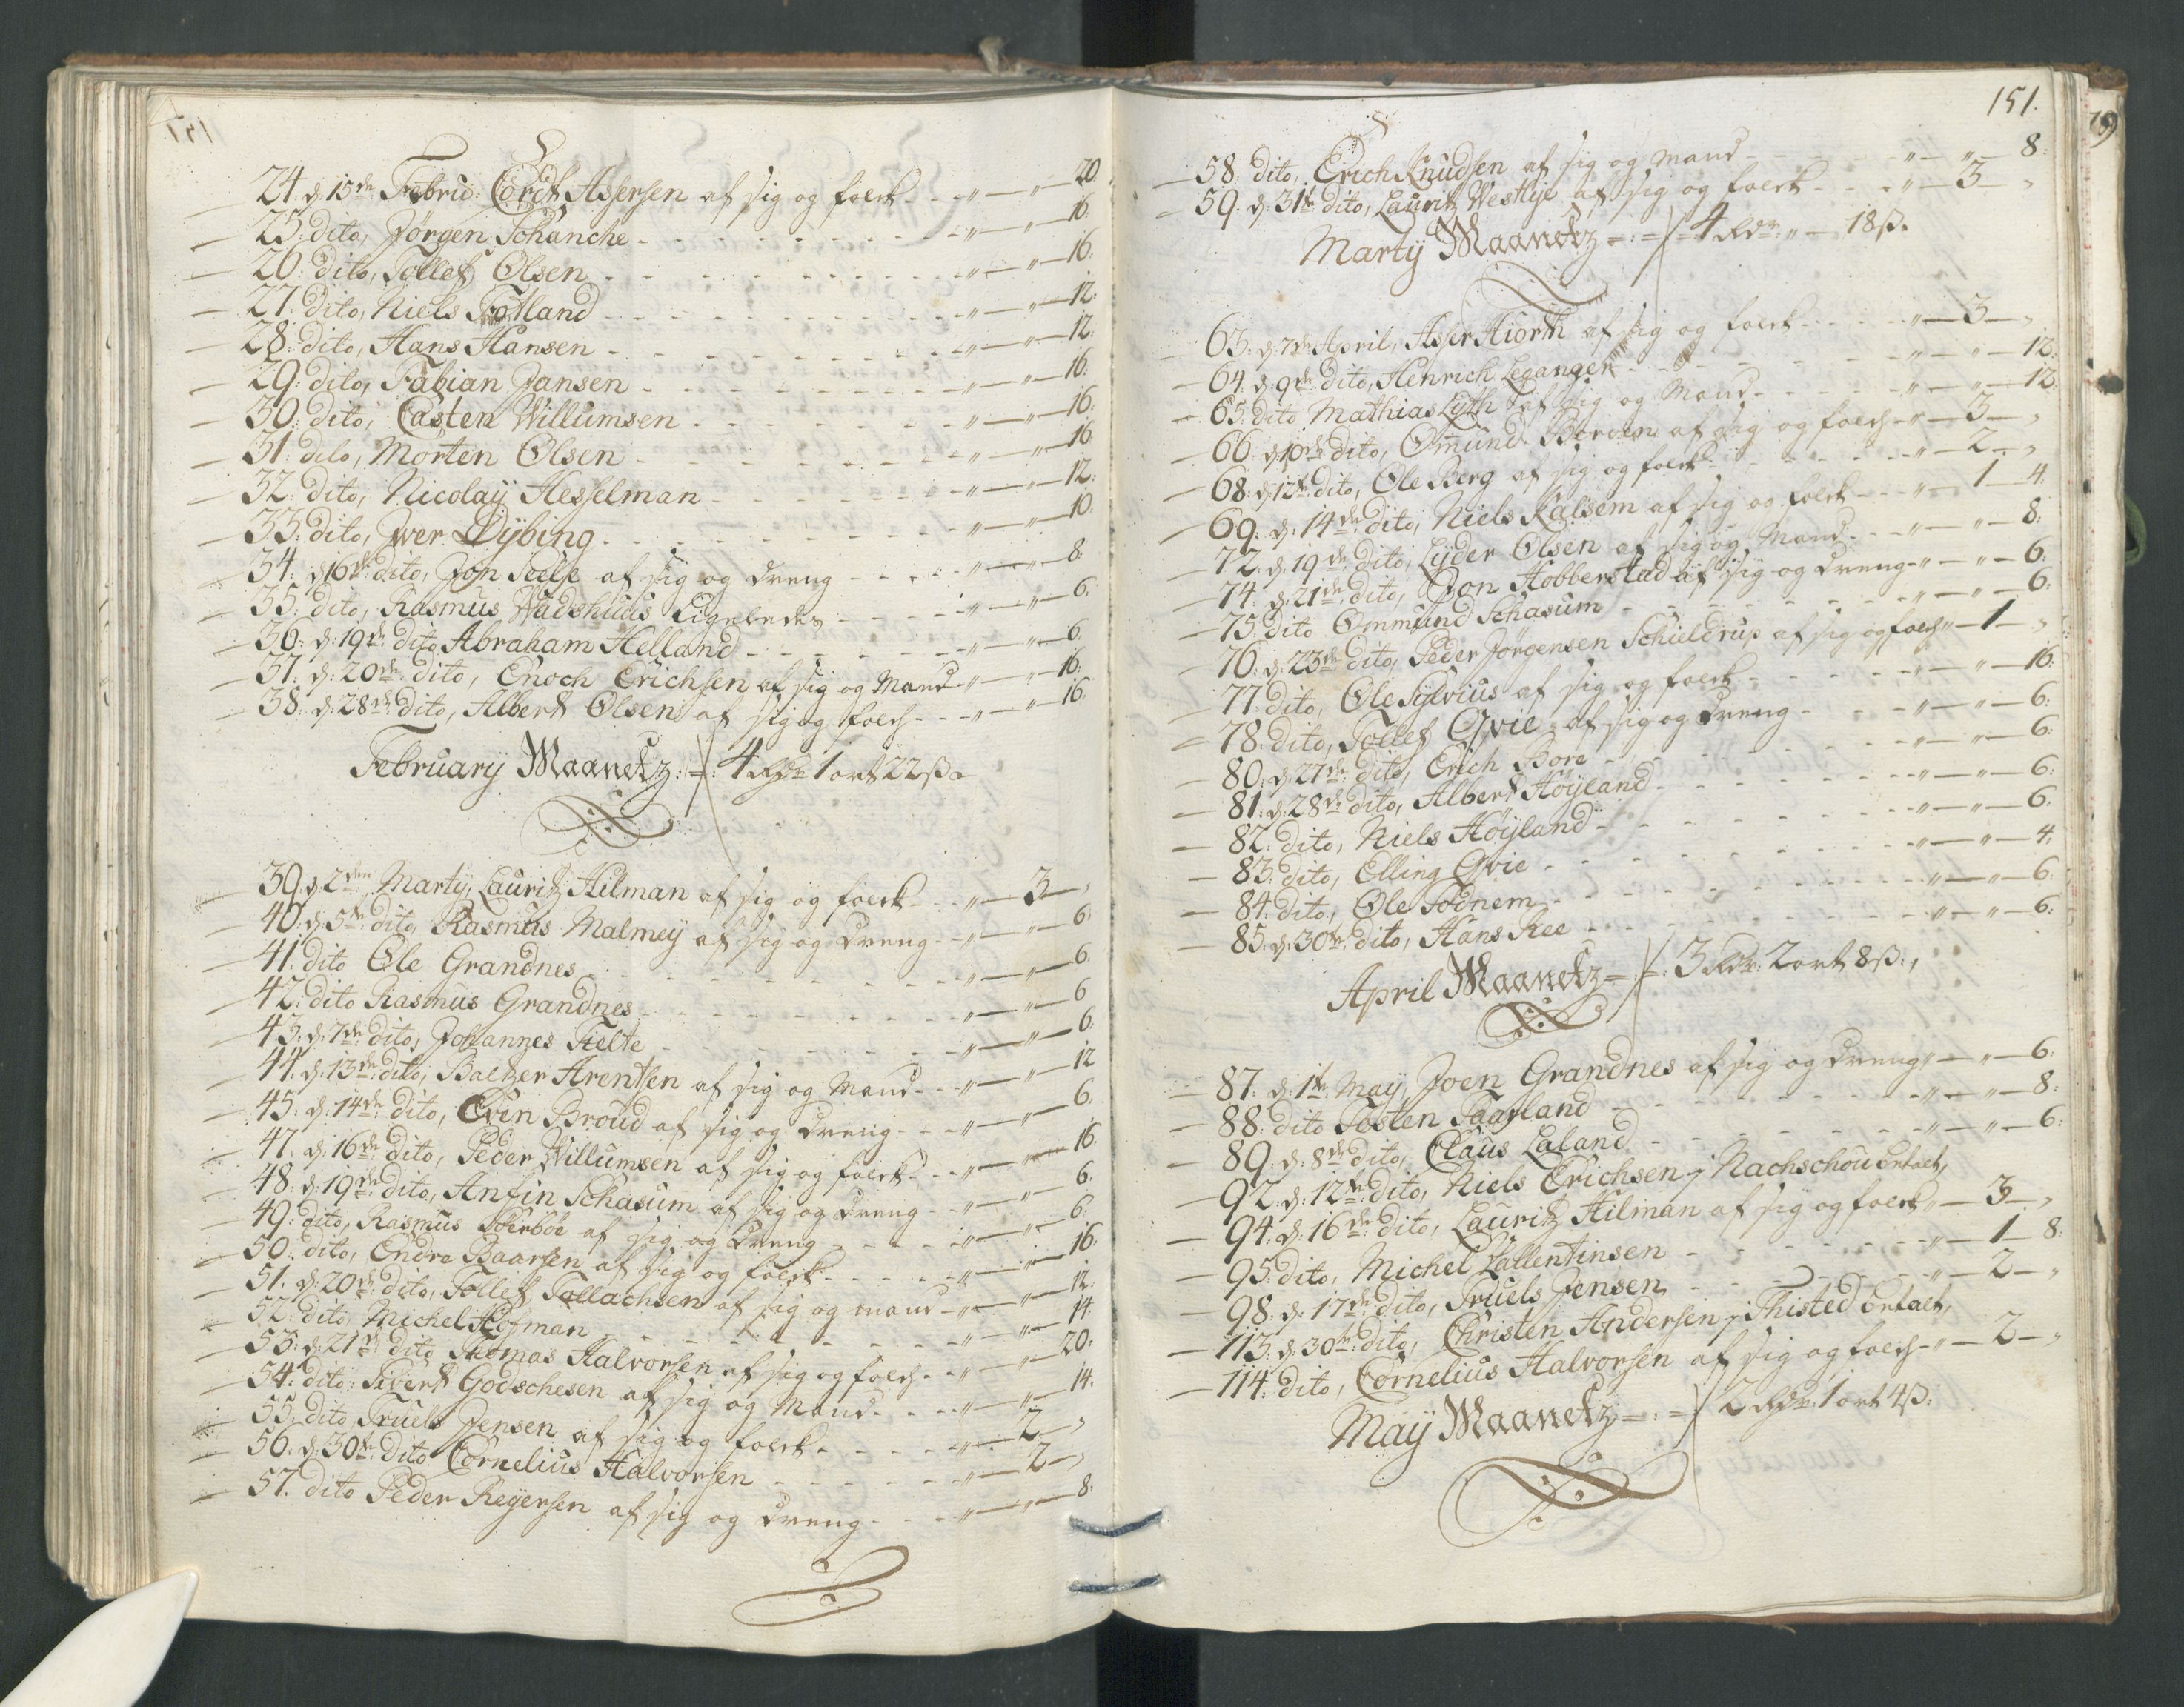 24. d. 15de Febru: Cordt Assersen af sig og folck - - - " — " — 20
25. dito, Jørgen Schanche - - - " — " — 16.
26. dito, Tollef Olsen - - - " — " — 16.
27. dito, Niels Fotland - - - " — " — 12.
28. dito, Hans Hansen - - - " — " — 12.
29. dito, Fabian Jansen - - - " — " — 16.
30. dito, Casten Willumsen - - - " — " — 16.
31. dito, Morten Olsen - - - " — " — 16
32. dito, Nicolaÿ Hesselman - - - " — " — 12.
33. dito, Iver Dÿbing - - - " — " — 10.
34. d 16de dito, Jon Seelse af sig og dreng - - - " — " — 8.
35. dito, Rasmus Wadshuus Ligeledes - - - " — " — 6.
36. d. 19de dito Abraham Helland - - - " — " — 6.
37. d. 20de dito, Enoch Erichsen af sig og Mand - " — " — 16.
38. d. 28de dito, Albert Olsen af sig og folch - - - " — " — 16
Februarÿ Maanetz :=: 4 Rdr 1 ort 22 ß
39. d. 2den Martÿ, Lauritz Hilman af sig og folck - - - " — 3 — "
40. d. 5te dito, Rasmus Malmeÿ af sig og dreng - - " — " — 6.
41. dito Ole Grandnes - - - " — " — 6.
42. dito Rasmus Grandnes - - - " — " — 6
43. d. 7de dito, Johannes Tielte - - - " — " — 6.
44. d. 13de dito, Baltzer Arentsen af sig og Mand - - - " — " — 12
45. d. 14de dito, Evin Broud af sig og dreng - - - " — " — 6.
47. d. 16de dito, Peder Willumsen af sig og folck - - - " — " — 16.
48. d. 19de dito, Anfin Schasum af sig og dreng - - " — " — 6.
49. dito, Rasmus Soerboe af sig og dreng - - - " — " — 6.
50. dito, Endre Baarsen af sig og folck - - - " — " — 16.
51. d. 20de dito, Tollef Tollachsen af sig og mand - " — " — 12.
52. dito Michel Hofman - - - " — " — 14
53. d. 21de dito Thomas Halvorsen af sig og folch - - " — " — 20.
54. dito, Sivert Godschesen af sig og Mand - - - " — " — 14.
55. dito, Truels Jensen af sig og folck - - - " — 2. — "
56. d. 30te dito Cornelius Halvorsen - - - " — 2 — "
57. dito Peder Reÿersen af sig og dreng - - - " — " — 8.
151.
58. dito, Erich Knudsen af sig og Mand - - - " — " — 8.
59. d. 31te dito, Lauritz Westlÿe af sig og folck - - - " — 3 — "
Martÿ Maanetz =:= 4 Rdr " — 18 ß.
63. d. 7de April, Asser Hiorth af sig og folck - - - " — 3 — "
64. d. 9de dito, Henrich Leganger - - - " — " — 12.
65. dito Mathias Lÿth af sig og Mand - - - " — " — 12.
66. d 10de dito, Ommund af sig og folch - " — 3 — "
68. d 12te dito, Ole Berg af sig og folck - - - " — 2 — "
69. d. 14de dito, Niels Kalsem af sig og folck - - - " — 1 — 4.
72. d. 19de dito, Lÿder Olsen af sig og Mand - - - " — " — 8.
74. d. 21de dito, Jon Hobberstad af sig og dreng - " — " — 6.
75. dito Ommund Schasum - - - " — " — 6.
76. d. 23de dito, Peder Jørgensen Schieldrup af sig og folch " — 1 — "
77. dito, Ole Sylvius af sig og folck - - - " — " — 16.
78. dito, Tollef Qvie af sig og dreng - - - " — " — 6.
80. d. 27de dito, Erich Bore - - - " — " — 6.
81. d. 28de dito, Albert Höÿland - - - " — " — 6.
82. dito, Niels Höÿland - - - " — " — 6.
83. dito, Elling Qvie - - - " — " — 4.
84. dito, Ole Todnem - - - " — " — 6.
85. d. 30te dito, Hans Ree - - - " — " — 6.
April Maanetz =:= 3 Rdr. 2 ort 8 ß.,
87. d. 1te Maÿ, Joen Grandnes af sig og dreng " — " — 6.
88. dito Tosten Taarland - - - " — " — 8.
89. d. 8de dito, Claus Laland - - - " — " — 6.
92. d. 12te dito, Niels Erichsen j Nachschou betalt,
94. d. 16de dito, Lauritz Hilman af sig og folck " — 3 — "
95. dito, Michel Lallentinsen - - - " — 1 — 8.
98. d. 17de dito, Truels Jensen - - - " — 2 — "
113. d. 30te dito, Christen Andersen j Thisted betalt,
114. dito, Cornelius Halvorsen af sig og folch - " — 2 — "
Maÿ Maanetz =:= 2 Rdr. 1 ort 4 ß.